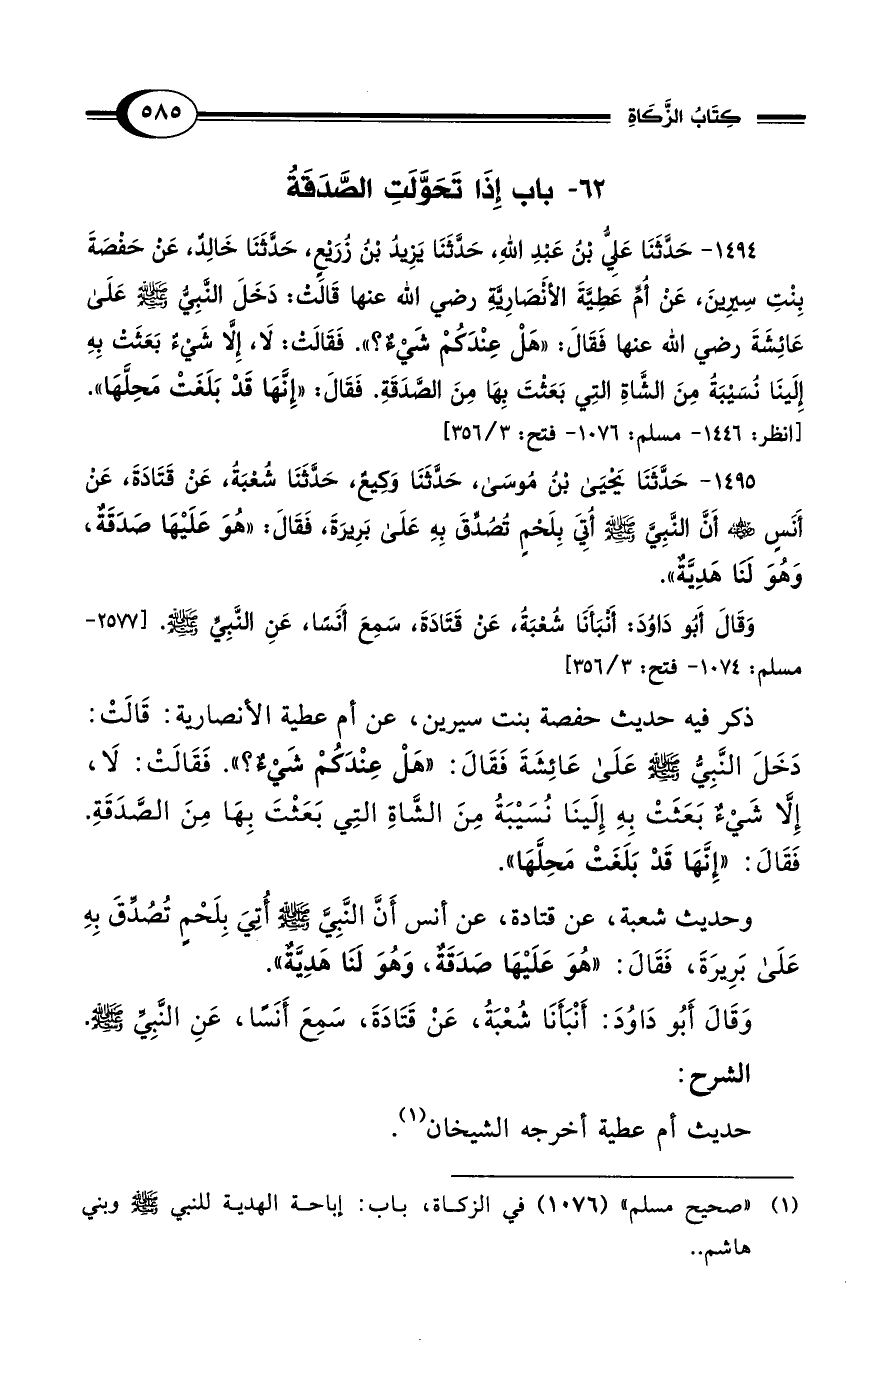 كِتَابُ الزَّكَاةِ ٥٨٥
٦٢- باب إِذَا تَحَوَّلَتِ الصَّدَقَةُ
١٤٩٤- حَدَّثَنَا عَلِيُّ بْنُ عَبْدِ اللهِ، حَدَّثَنَا يَزِيدُ بْنُ زُرَيْعٍ، حَدَّثَنَا خَالِدٌ، عَنْ حَفْصَةَ
بِنْتِ سِيرِينَ، عَنْ أُمِّ عَطِيَّةَ الأَنْصَارِيَّةِ رضي الله عنها قَالَتْ: دَخَلَ النَّبِيُّ ﷺ عَلَىٰ
عَائِشَةَ رضي الله عنها فَقَالَ: «هَلْ عِنْدَكُمْ شَيْءٌ؟». فَقَالَتْ: لَا، إِلَّا شَيْءٌ بَعَثَتْ بِهِ
إِلَينَا نُسَيْبَةُ مِنَ الشَّاةِ التِي بَعَثْتَ بِهَا مِنَ الصَّدَقَةِ. فَقَالَ: «إِنَّهَا قَدْ بَلَغَتْ مَحِلَّهَا».
[انظر: ١٤٤٦- مسلم: ١٠٧٦- فتح: ٣٥٦/٣]
١٤٩٥- حَدَّثَنَا يَحْيَىٰ بْنُ مُوسَى، حَدَّثَنَا وَكِيعٌ، حَدَّثَنَا شُعْبَةُ، عَنْ قَتَادَةَ، عَنْ
أَنَسٍ رضي الله عنه أَنَّ النَّبِيَّ ﷺ أُتِيَ بِلَحْمٍ تُصُدِّقَ بِهِ عَلَىٰ بَرِيرَةَ، فَقَالَ: «هُوَ عَلَيْهَا صَدَقَةٌ،
وَهُوَ لَنَا هَدِيَّةٌ».
وَقَالَ أَبُو دَاوُدَ: أَنْبَأَنَا شُعْبَةُ، عَنْ قَتَادَةَ، سَمِعَ أَنَسًا، عَنِ النَّبِيِّ ﷺ. [٢٥٧٧-
مسلم: ١٠٧٤- فتح: ٣٥٦/٣]
ذكر فيه حديث حفصة بنت سيرين، عن أم عطية الأنصارية: قَالَتْ:
دَخَلَ النَّبِيُّ ﷺ عَلَىٰ عَائِشَةَ فَقَالَ: «هَلْ عِنْدَكُمْ شَيْءٌ؟». فَقَالَتْ: لَا،
إِلَّا شَيْءٌ بَعَثَتْ بِهِ إِلَينَا نُسَيْبَةُ مِنَ الشَّاةِ التِي بَعَثْتَ بِهَا مِنَ الصَّدَقَةِ.
فَقَالَ: «إِنَّهَا قَدْ بَلَغَتْ مَحِلَّهَا».
وحديث شعبة، عن قتادة، عن أنس أَنَّ النَّبِيَّ ﷺ أُتِيَ بِلَحْمٍ تُصُدِّقَ بِهِ
عَلَىٰ بَرِيرَةَ، فَقَالَ: «هُوَ عَلَيْهَا صَدَقَةٌ، وَهُوَ لَنَا هَدِيَّةٌ».
وَقَالَ أَبُو دَاوُدَ: أَنْبَأَنَا شُعْبَةُ، عَنْ قَتَادَةَ، سَمِعَ أَنَسًا، عَنِ النَّبِيِّ ﷺ.
الشرح:
حديث أم عطية أخرجه الشيخان(١).
(١) «صحيح مسلم» (١٠٧٦) في الزكاة، باب: إباحة الهدية للنبي ﷺ وبني
هاشم..